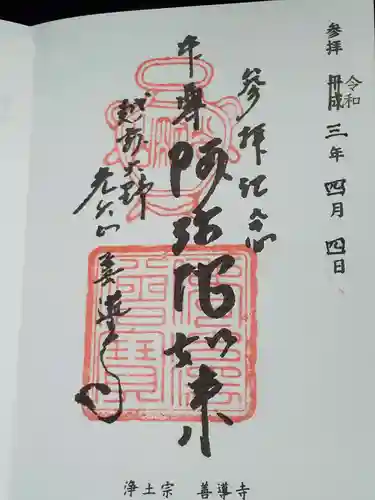 参拝 平成 令和 三年 四月 四日
参拝記念
本尊 阿弥陀如来
越前大野
善導寺
浄土宗 善導寺